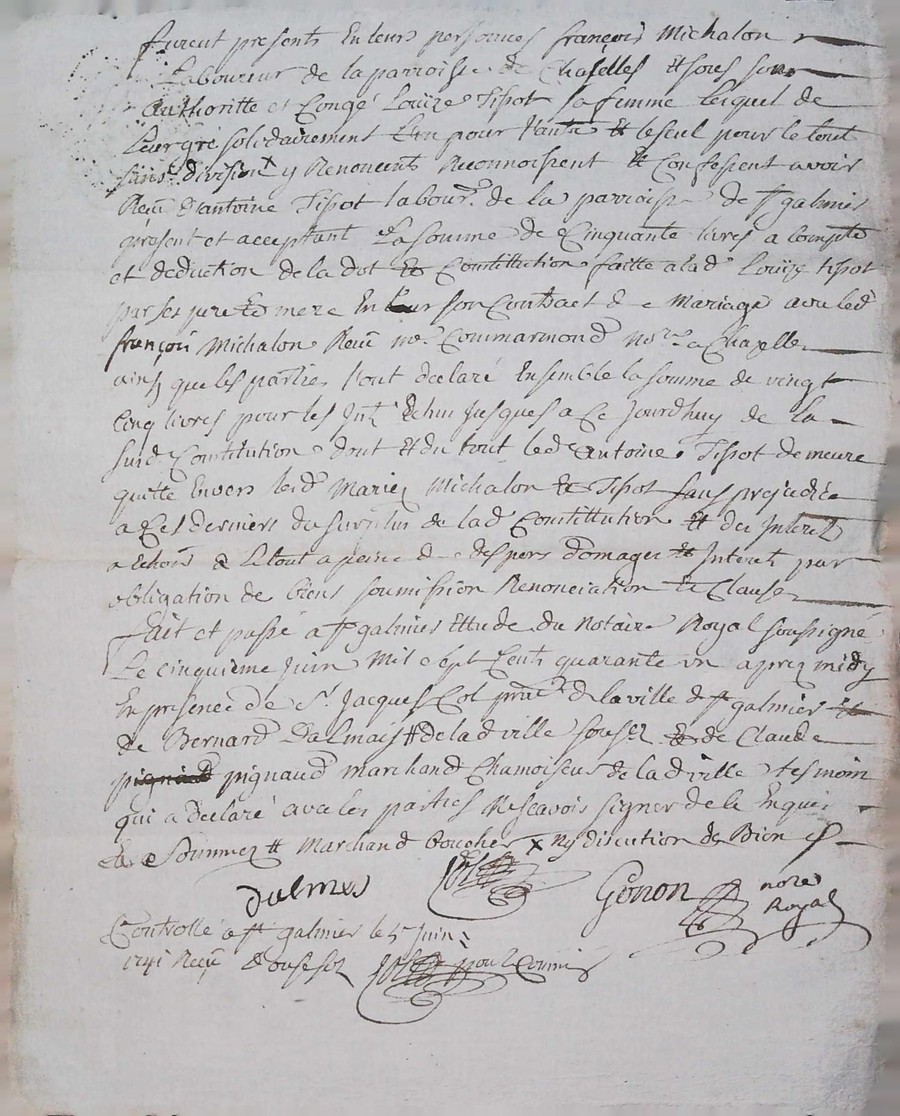 furent presents En leurs personnes françois Michalon
Laboureur de la parroisse de Chaselles Et sous son
Authoritté et Congé Louize Tissot sa femme lesquel de
Leur gré solidairement L'un pour l'autre Et le seul pour le tout
sans division x y Renoncents Reconnoissent Et Confessent avoir
Receu d'antoine Tissot labour.r de la parroisse de St galmier
present et acceptant La somme de Cinquante livres a Compte
et deduction de la dot Et Constitution faitte a la d. Louize tissot
par ses pere Et mere En son Contract de Mariage avec led.
françois Michalon Receu me. Commarmond nore. a Chazelle
ainsy que les parties l'ont déclaré Ensemble la somme de vingt
Cinq livres pour les Intt. Echeu Jusques a Ce Jourdhuy de la
susd. Constitution dont Et du tout led. Antoine Tissot demeure
quitte Envers lesd. Mariez Michalon Et Tissot sans prejudice
a Ces derniers du surplus de lad. Constitution Et des Interet
a Echoir Le tout a peine de despens domages Et Interets par
obligation de biens soumission Renonciation Et Clauses
fait et passé a St galmier Ettude du Notaire Royal soussigné
Le cinquieme Juin Mil sept Cents quarante un apres midy
En presence de Sr. Jacques Col de la ville de St galmier Et
de Bernard Dalmais # de lad. ville sousez Et de Claude
pignaud marchand Chamoiseur de lad. ville tesmoin
qui a Declaré avec les parties Ne scavoir signer de ce Enquis
Et Sommez # Marchand boucher x Ny discution de Bien
dalmes Col Gonon nore Royal
Controllé a St galmier le 5e Juin
1741 Receu Douse sol Col pour Commis